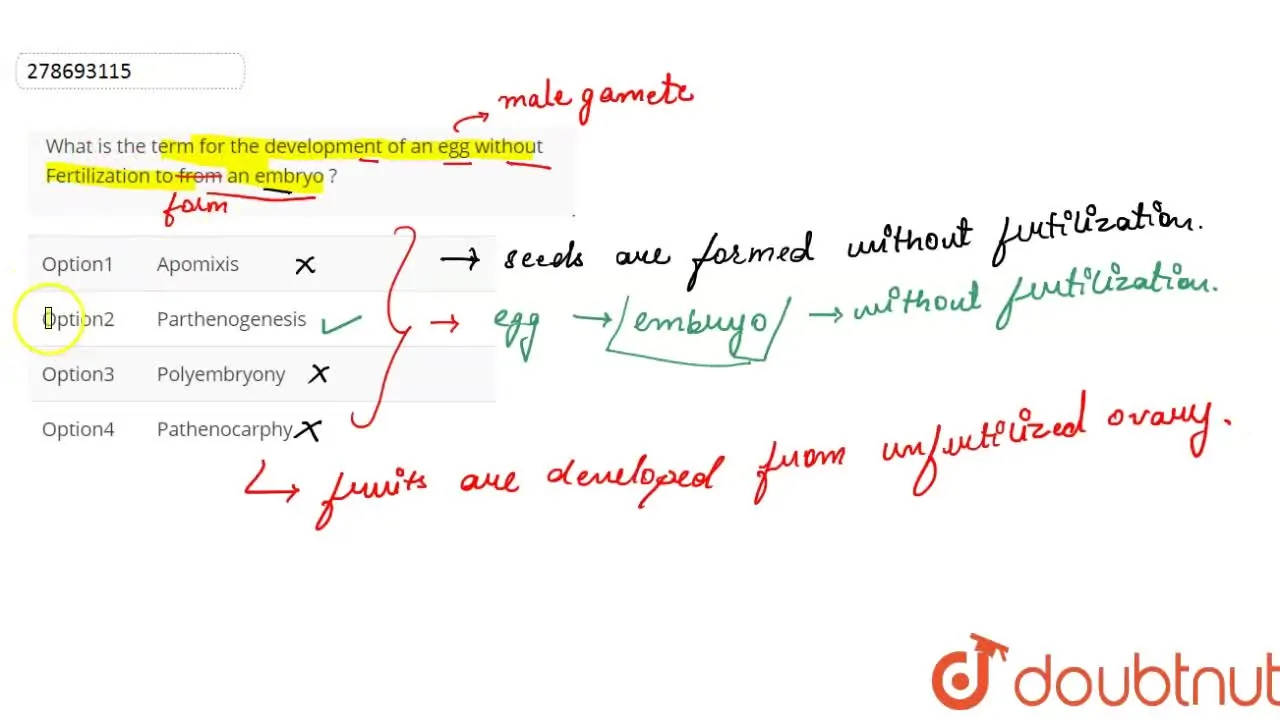 278693115
male gamete
What is the term for the development of an egg without
Fertilization to from an embryo ?
form
Option1 Apomixis x → seeds are formed without fertilization.
Option2 Parthenogenesis ✓ → egg → embryo → without fertilization.
Option3 Polyembryony x
Option4 Pathenocarphy x
↳ fruits are developed from unfertilized ovary.
doubtnut